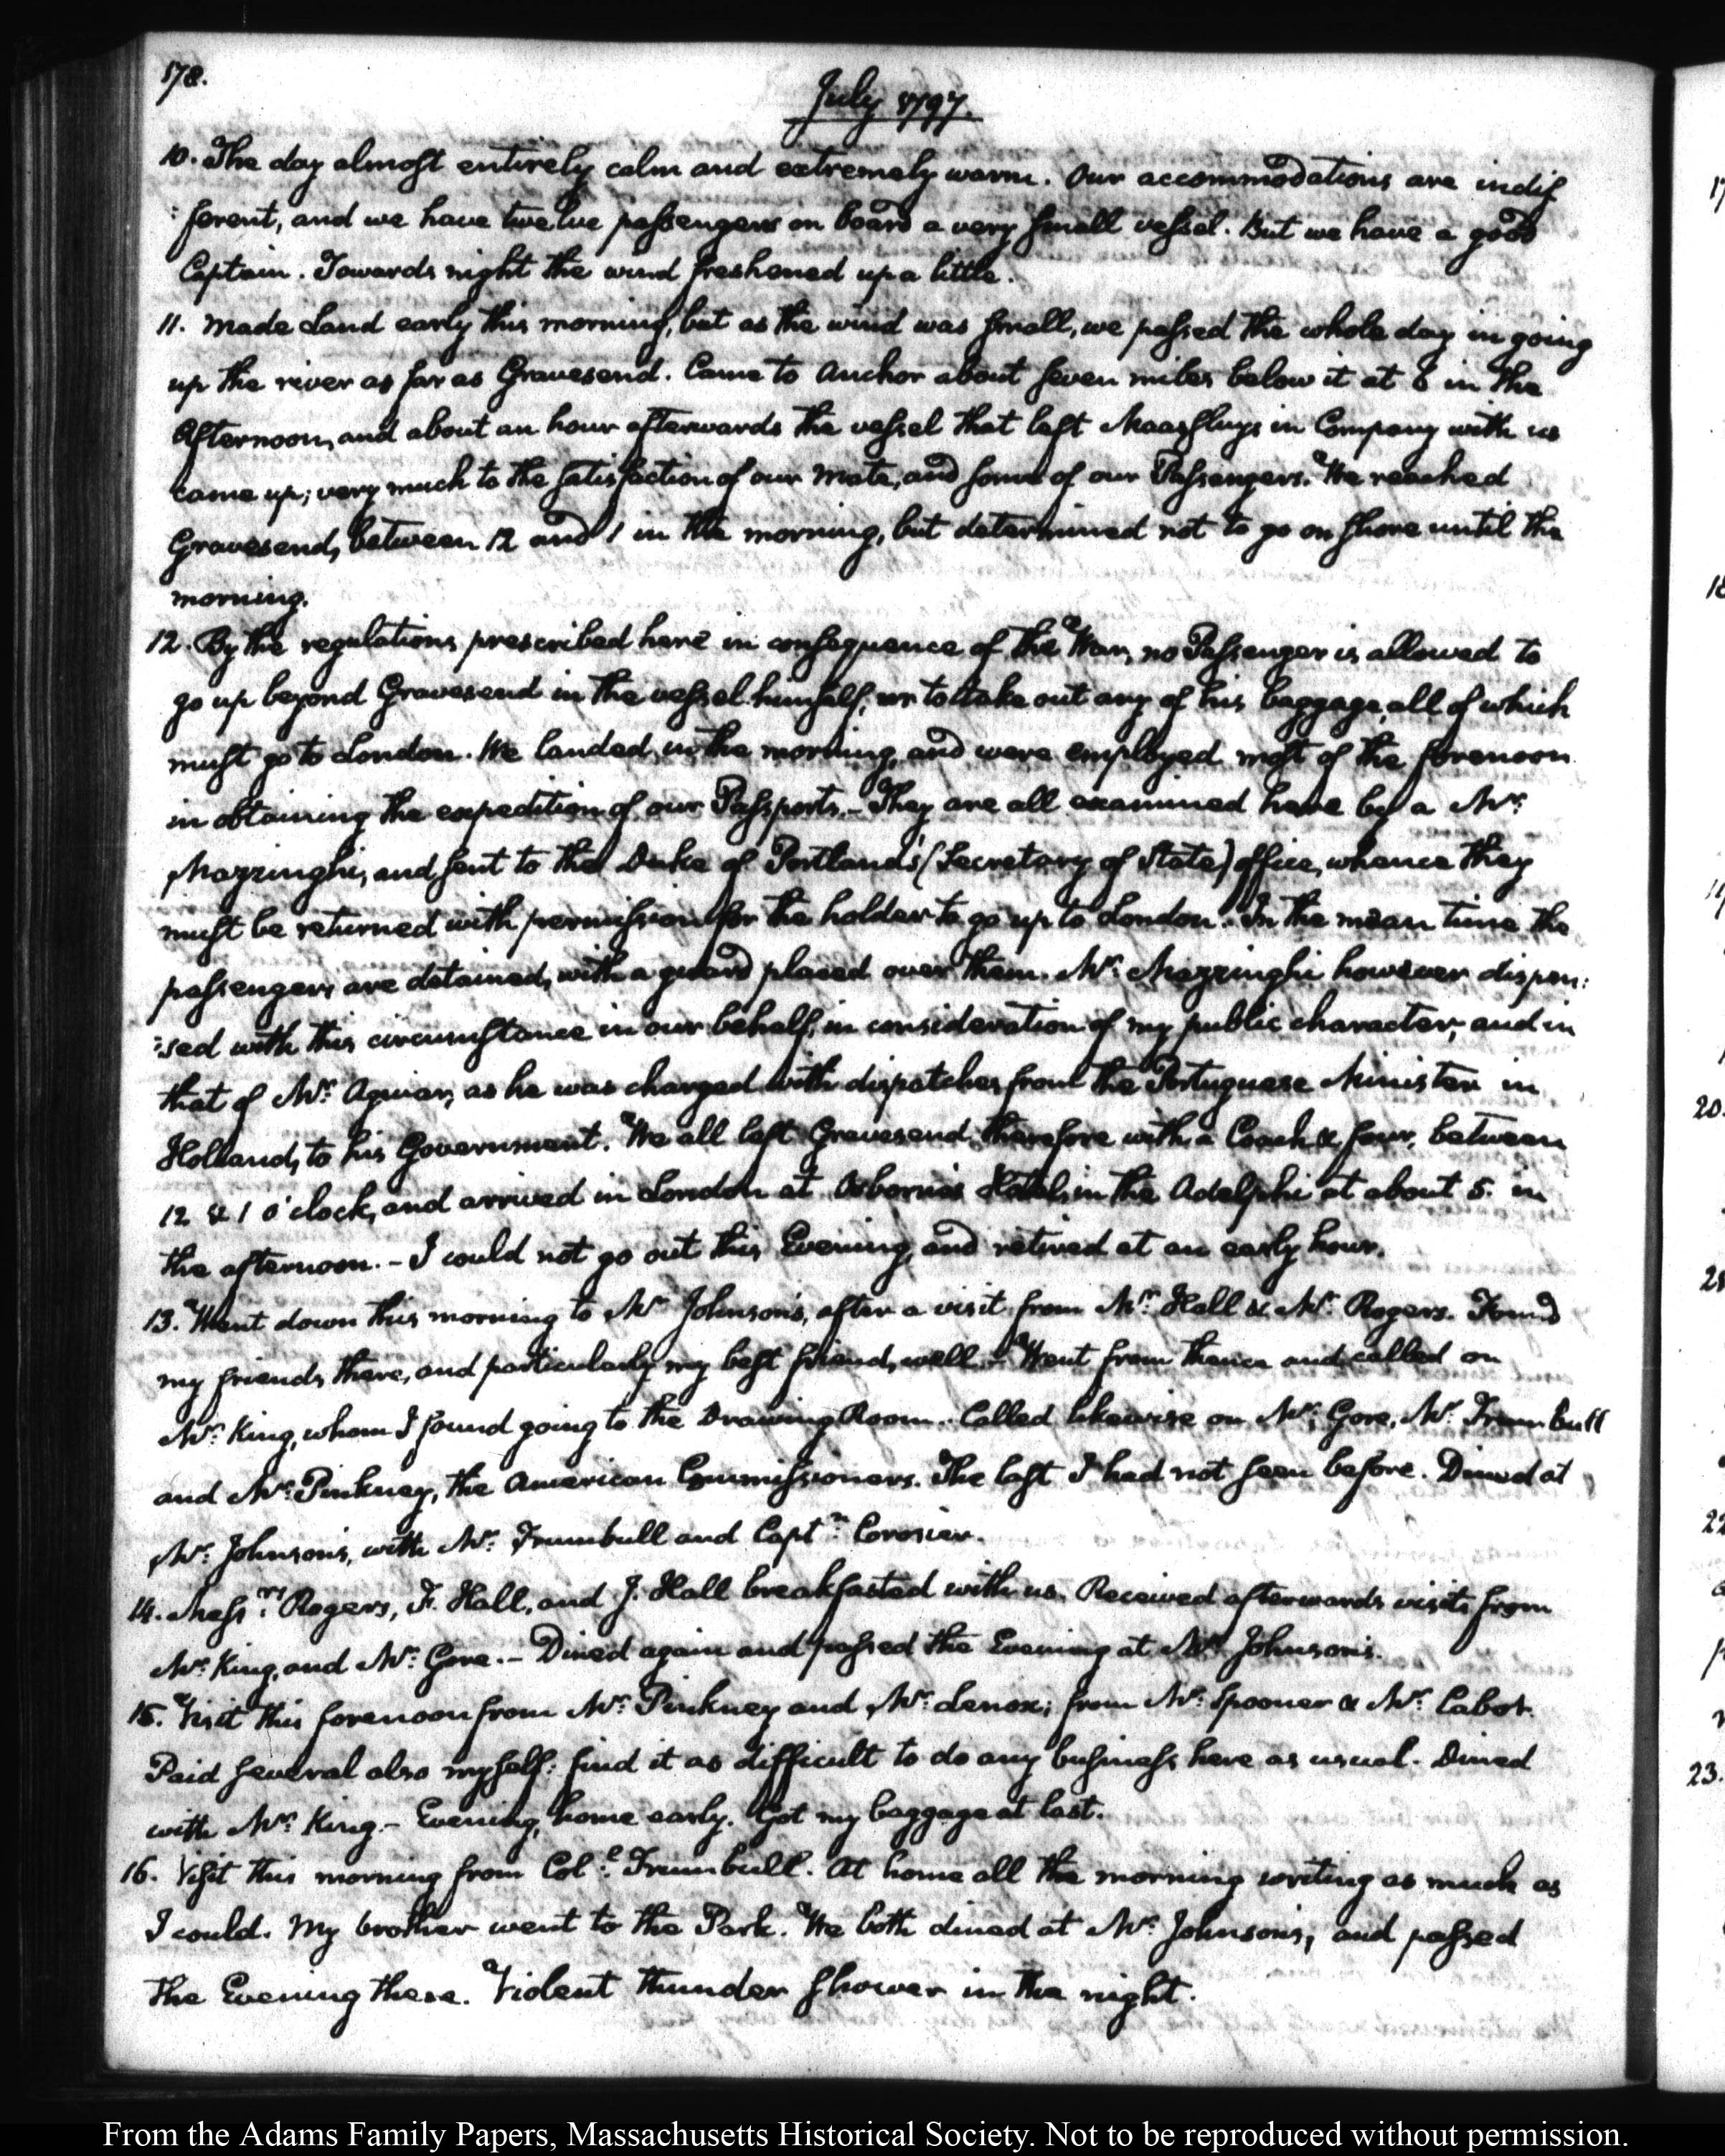 178.
July 1797.
10. The day almost entirely calm and extremely warm. Our accommodations are indif
: ferent, and we have twelve passengers on board a very small vessel. But we have a good
Captain. Towards night the wind freshened up a little.
11. Made Land early this morning, but as the wind was small, we passed the whole day in going
up the river as far as Gravesend. Came to Anchor about seven miles below it at 6 in the
Afternoon, and about an hour afterwards the vessel that left Maassluys in Company with us
came up; very much to the satisfaction of our Mate, and some of our Passengers. We reached
Gravesend, between 12 and 1 in the morning, but determined not to go on shore until the
morning.
12. By the regulations prescribed here in consequence of the War, no Passenger is allowed to
go up beyond Gravesend in the vessel himself, or to take out any of his baggage, all of which
must go to London. We landed in the morning, and were employed most of the forenoon
in obtaining the expedition of our Passports. – They are all examined here by a Mr:
Mazzinghi, and sent to the Duke of Portland's (Secretary of State) office, whence they
must be returned with permission for the holder to go up to London. In the mean time the
passengers are detained, with a guard placed over them. Mr: Mazzinghi however dispen:
:sed with this circumstance in our behalf, in consideration of my public character, and in
that of Mr: Aguiar, as he was charged with dispatches from the Portuguese Minister in
Holland, to his Government. We all left Gravesend, therefore with a Coach & four, between
12 & 1 o'clock, and arrived in London at Osborne's Hotel, in the Adelphi at about 5. in
the afternoon. – I could not go out this Evening, and retired at an early hour.
13. Went down this morning to Mr: Johnson's, after a visit from Mr: Hall & Mr: Rogers. Found
my friends there, and particularly my best friend, well. – Went from thence and called on
Mr: King, whom I found going to the Drawing Room. Called likewise on Mr: Gore, Mr: Trumbull
and Mr: Pinkney, the American Commissioners. The last I had not seen before. Dined at
Mr: Johnson's, with Mr: Trumbull and Captn: Corosier.
14. Messrs: Rogers, F. Hall, and J. Hall breakfasted with us. Received afterwards visits from
Mr: King, and Mr: Gore. – Dined again and passed the Evening at Mr: Johnson's.
15. Visit this forenoon from Mr: Pinkney and Mr: Lenox; from Mr: Spooner & Mr: Cabot.
Paid several also myself: find it as difficult to do any business here as usual. Dined
with Mr: King. – Evening, home early. Got my baggage at last.
16. Visit this morning from Coll: Trumbull. At home all the morning writing as much as
I could. My brother went to the Park. We both dined at Mr: Johnson's, and passed
the Evening there. Violent thunder shower in the night.
18
19
20.
21
22
23.
From the Adams Family Papers, Massachusetts Historical Society. Not to be reproduced without permission.